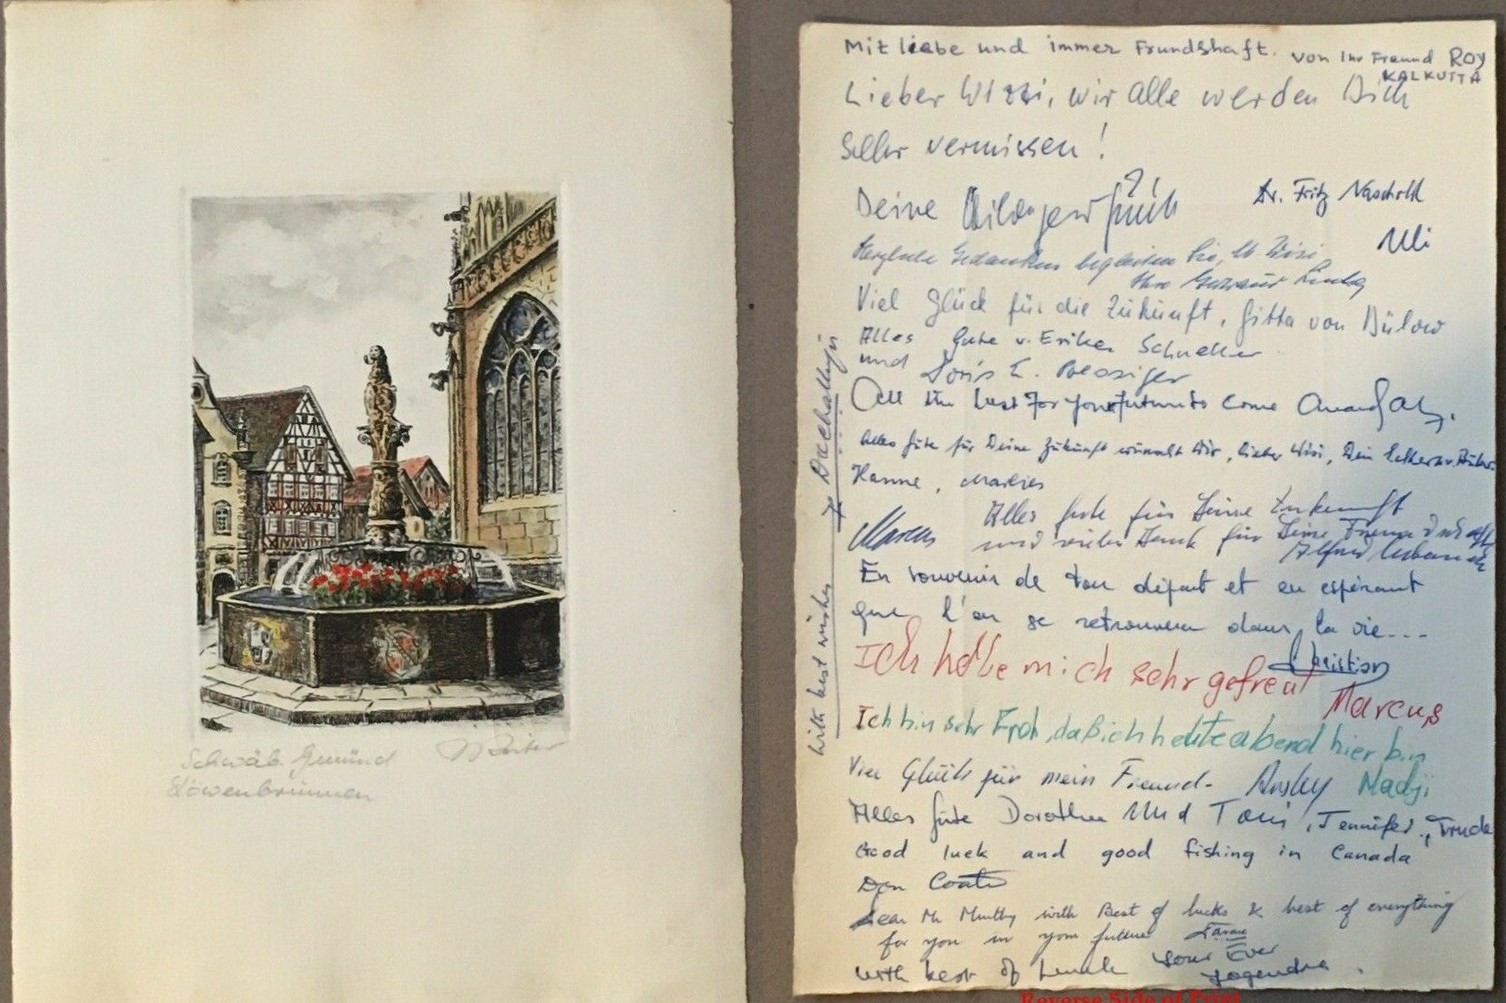 Schwäb. Gmünd
Löwenbrunnen
Reiter
Mit liebe und immer Frundshaft. von Ihr Freund ROY
KALKUTTA
Lieber Wisi, wir alle werden Dich
sehr vermissen!
Deine
Dr. Fritz
Uli
Herzliche Gedanken begleiten Sie, lb. Wisi,
Ihre
Viel Glück für die Zukunft, Gitta von Bülow
Alles Gute v. Erika Schneller
und Doris E.
All the best for your future to come
Alles Gute für Deine Zukunft wünscht Dir, lieber Wisi, Dein
Hanne, Marlies
Alles Gute für Deine Zukunft
Marcus
und vielen Dank für Deine Freundschaft
Alfred
En souvenir de ton départ et en espérant
que l'on se retrouvera dans la vie...
Christian
Ich habe mich sehr gefreut
Marcus
Ich bin sehr Froh, daß ich heute abend hier bin
Nadji
Viel Glück für mein Freund.
Alles Gute Dorothee und Toni, Jennifer, Trude
Good luck and good fishing in Canada
Don
Dear Mr with Best of lucks & best of everything
for you in your future
with best of Luck Your Ever
Jogendra.
with best wishes
Reverse Side of Print